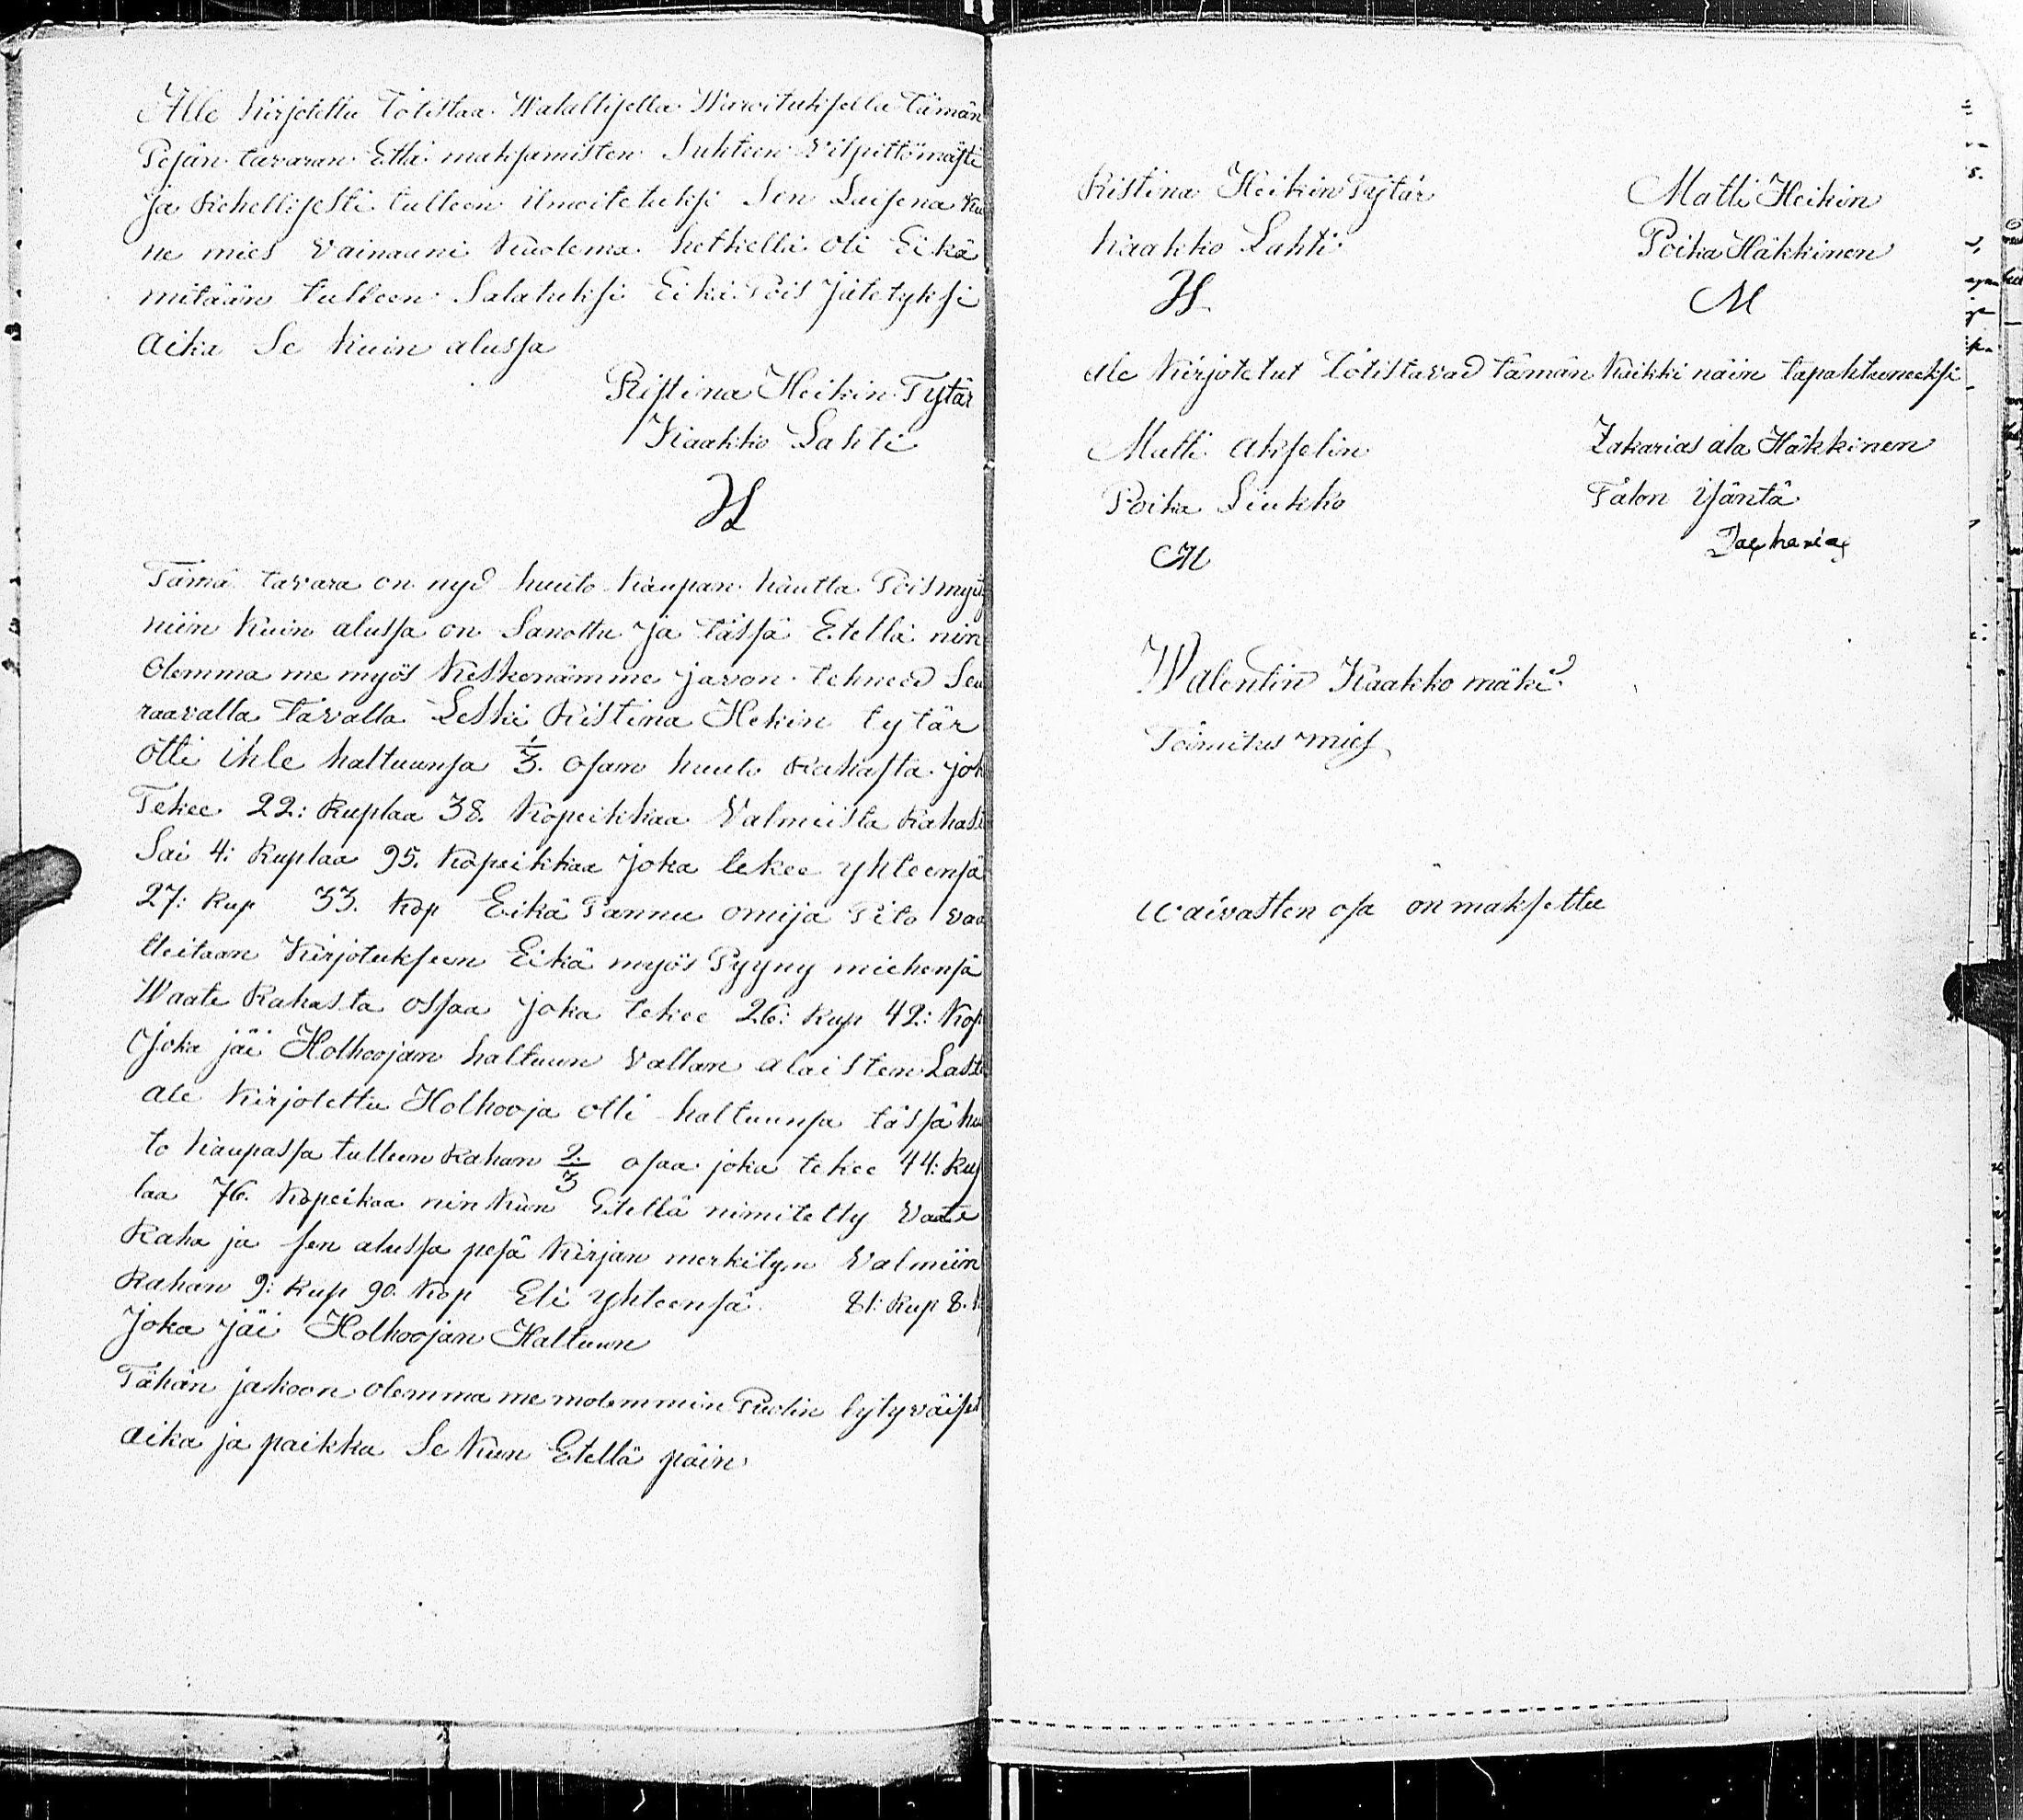 Alle Kirjotettu Totistaa Walallisella Waroituksella tämän
Pesän tavaran Että maksamisten Suhteen Vilpittömästi
ja Rehellisesti tulleen ilmoitetuksi Sen Laisena Ku
ne mies Vainaani Kuolema hetkellä oli Eikä
mitään tulleen Salatuksi Eikä Pois Jätetyksi
Aika Se Kuin alussa
Ristina Heikin Tytär
Kaakko Lahti
Tämä tavara on nyd huuto Kaupan kautta Pois myyty
niin Kuin alussa on Sanottu ja tässä Etellä nin
Olemma me myös Keskenämme javon tehneed Seu
raavalla tavalla Leski Ristina Hekin tytär
otti ihle haltuunsa 1/3. osan huuto Rahasta jok
Tekee 22: Ruplaa 38. Kopeikkaa Valmiista Rahast
Sai 4: Ruplaa 95. Kopeikkaa joka tekee yhteensä
27: Rup 33. Kop Eikä Pannu omija Pito vaa
tteitaan Kirjotukseen Eikä myös Pyyny miehensä
Waate Rahasta ossaa joka tekee 26: Rup 42: Kop
Joka jäi Holhoojan haltuun Vallan alaisten Laste
ale Kirjotettu Holhooja otti haltuunsa tässä huu
to Kaupassa tulleen Rahan 2/3 osaa joka tekee 44: Rup
laa 76. Kopeikaa nin Kun Etellä nimitetty Vaate
Raha ja sen alussa pesä Kirjan merkityn Valmiin
Rahan 9: Rup 90. Kop Eli yhteensä 81: Rup 8. K
Joka jäi Holhoojan Haltuun
Tähän jakoon olemma me molemmin Puolin tytyväiset
aika ja paikka Se Kun Etellä päin
Ristina Heikin Tytär
Kaakko Lahti
Matti Heikin
Poika Häkkinen
M
Ale Kirjotetut totistavad tämän Kaikki näin tapahtuneeksi
Matti Akselin
Poika Liukko
M
Zakarias ala Häkkinen
Talon isäntä
Zacharias
Walentin Kaakko mäki
Toimitus mies
waivasten osa on maksettu